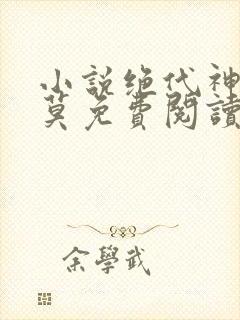 小說绝代神
莫免費閱讀
余學武